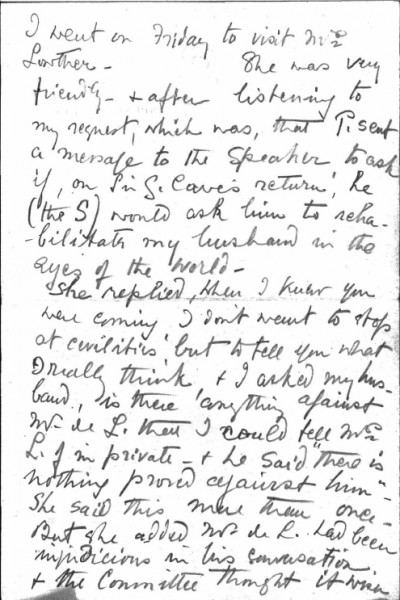 I went on Friday to visit Mrs
Lowther - She was very
friendly - & after listening to
my request, which was, that I sent
a message to the Speaker to ask
if, on Sir G. Cave's return, he
(the S) would ask him to reha-
-bilitate my husband in the
eyes of the world -
She replied, when I knew you
were coming I don't want to stop
at civilities, but to tell you what
I really think & I asked my hus-
band, is there anything against
Mr de L. that I could tell Mrs
L. of in private - & he said "there is
nothing proved against him" -
She said this more than once -
But she added Mr de L. had been
injudicious in his conversation
& the Committee thought it